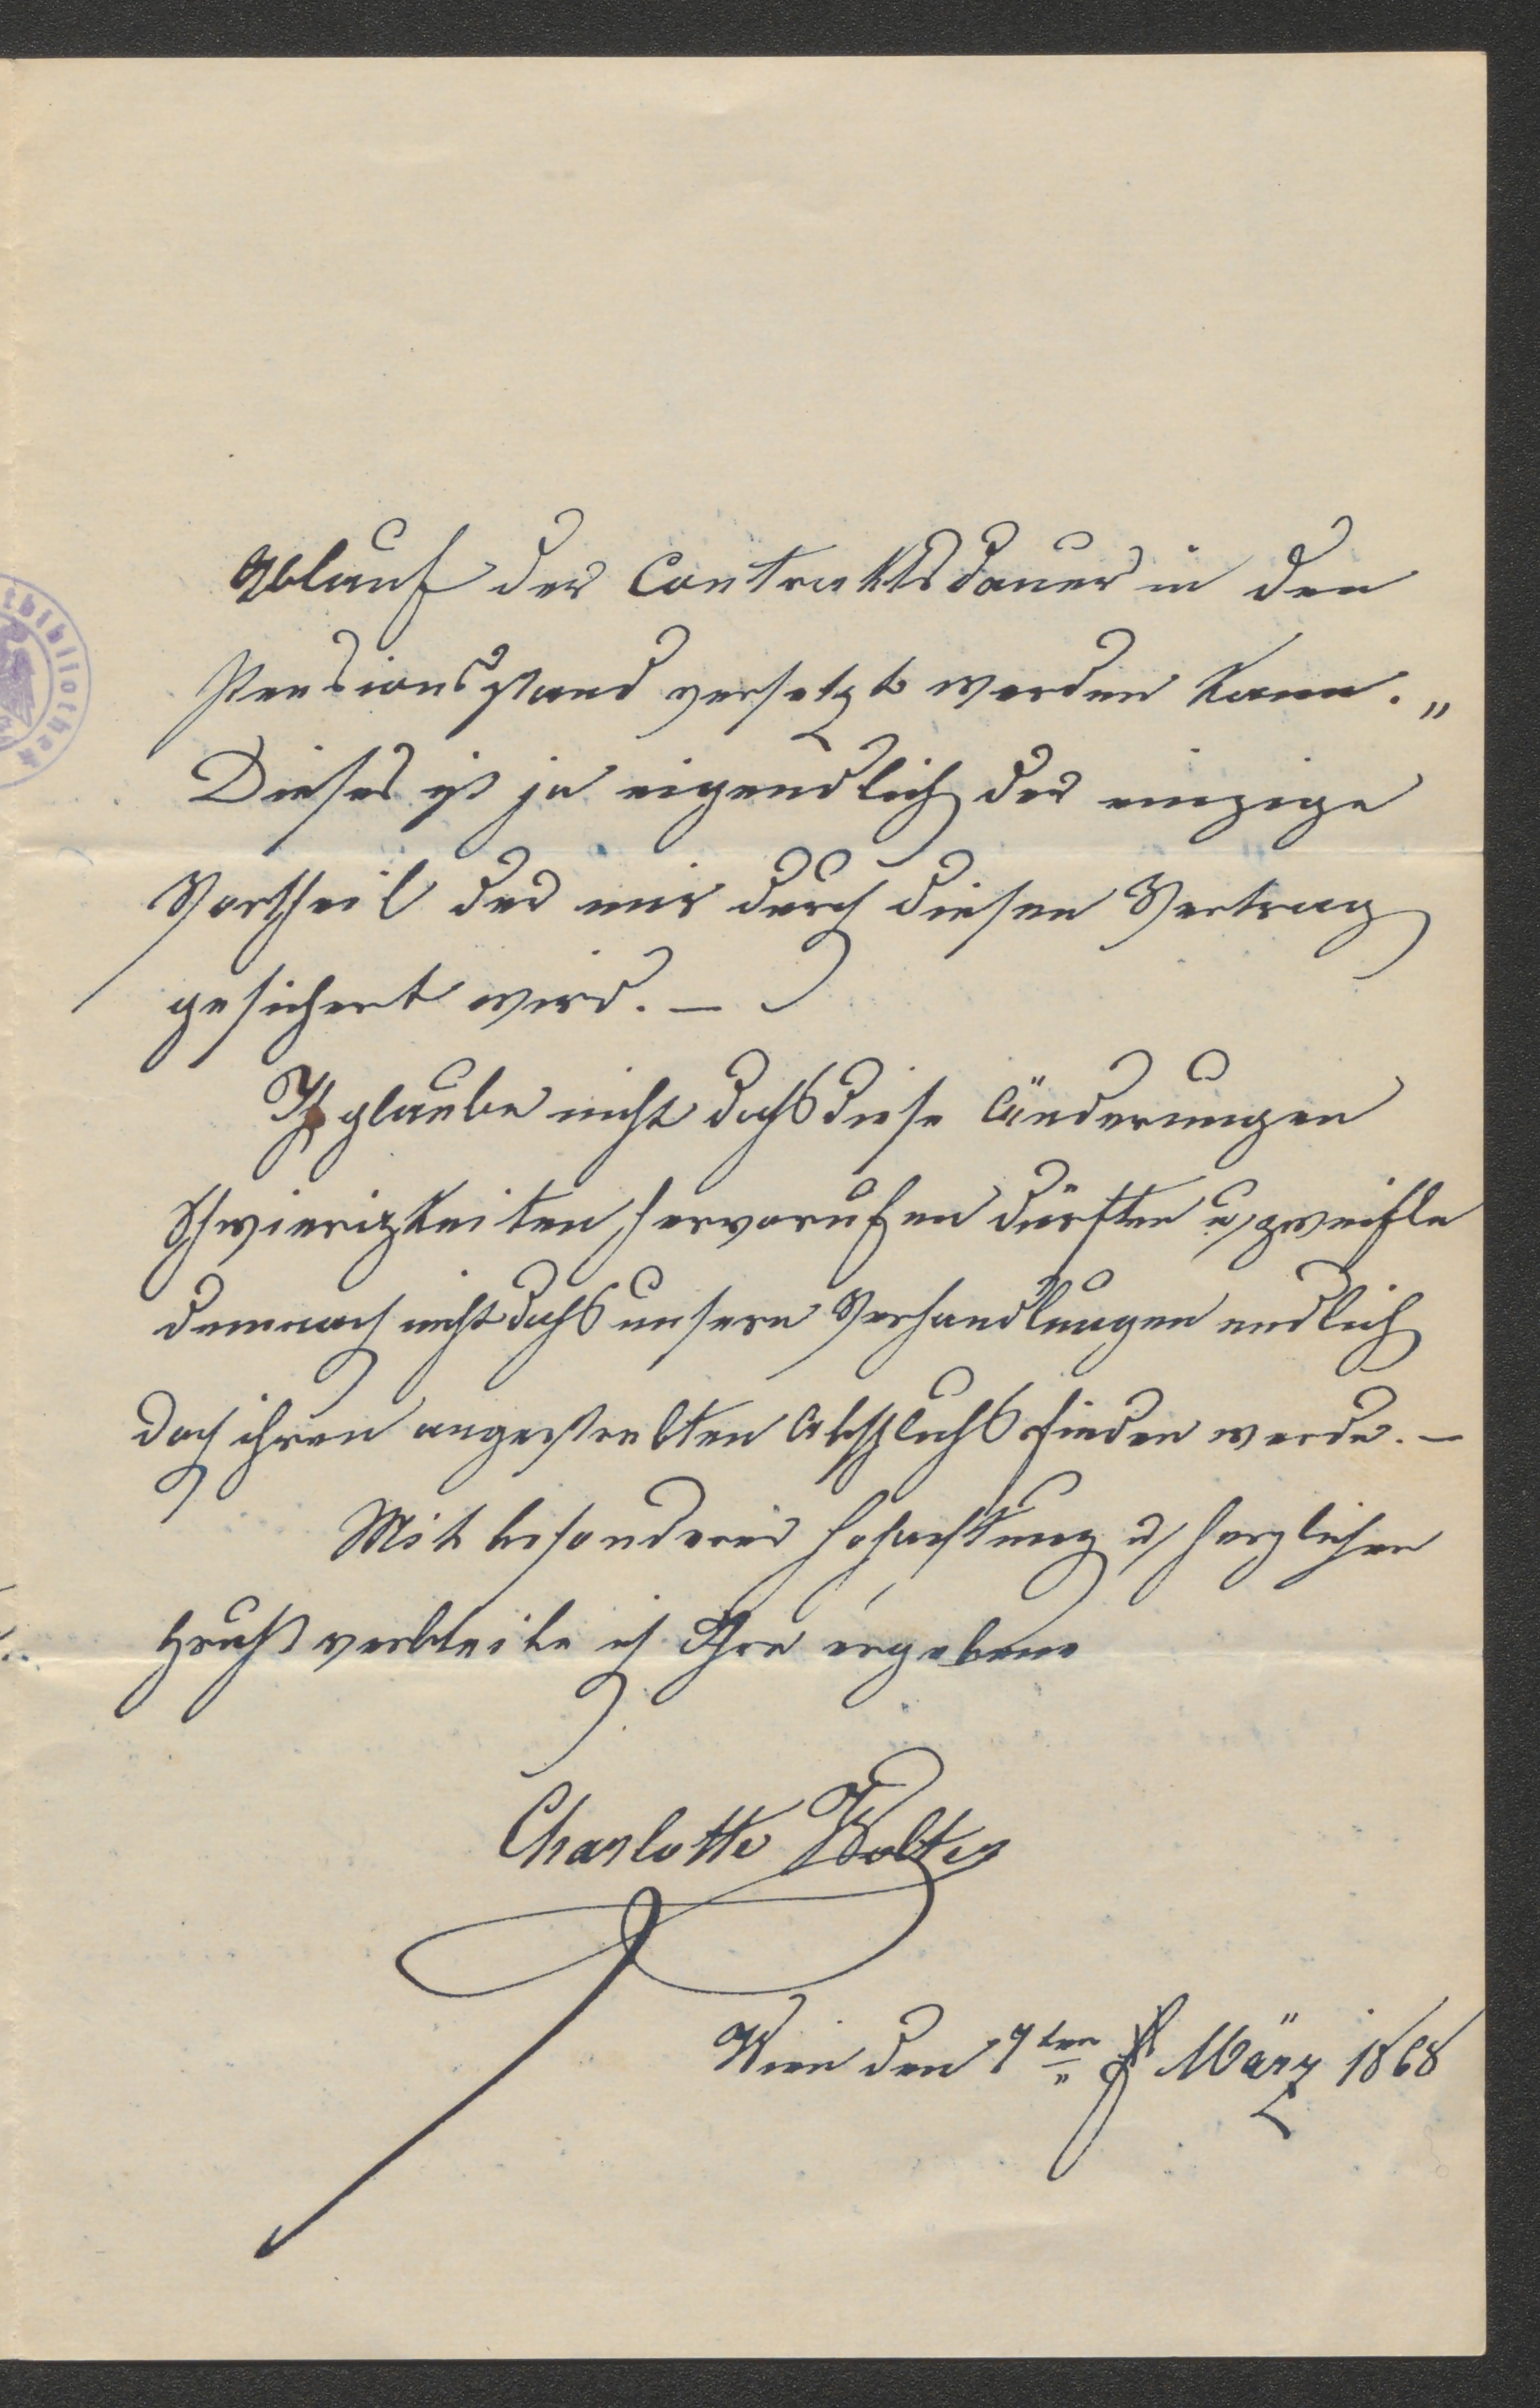 Ablauf der Contraktsdauer in den
Pensionsstand versetzt werden kann. „
Dieses ist ja eigendlich der einzige
Vortheil der mir durch diesen Vertrag
gesichert wird. —
Ich glaube nicht daß diese Änderungen
Schwierigkeiten hervorufen dürften u zweifle
demnach nicht daß unsere Verhandlungen endlich
doch ihren angestrebten Abschluß finden werde. —
Mit besonderer Hochachtung u herzlichen
Gruß verbleibe ich Ihre ergebene
Charlotte Wolter
Wien den ten März 1868